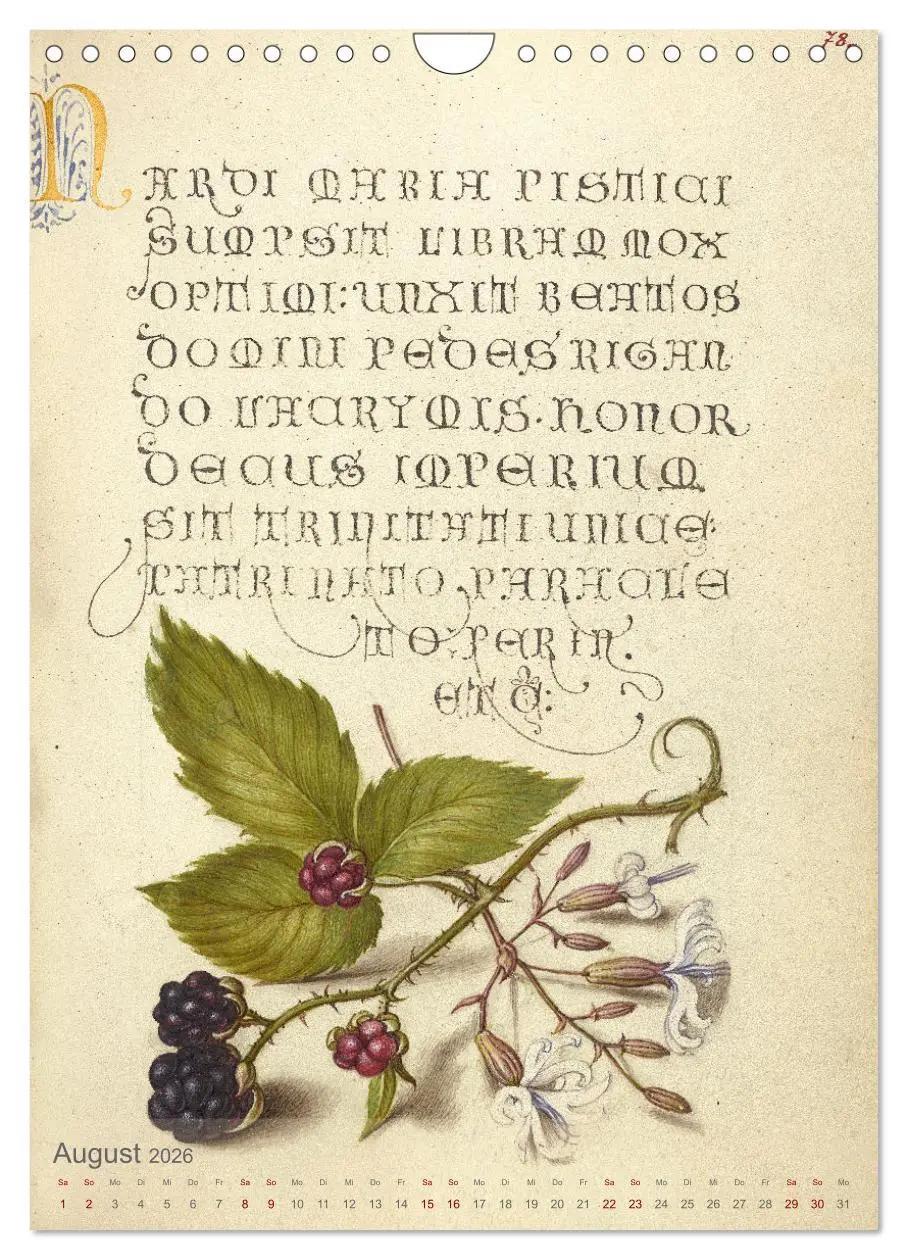 78.
NARDI MARIA PISTICI
SUMPSIT LIBRAM MOX
OPTIMI: UNXIT BEATOS
DOMINI PEDES RIGAN
DO LACRYMIS. HONOR
DECUS IMPERIUM
SIT TRINITATI UNICE:
PATRI NATO PARACLE
TO: PER IN.
ET C:
August 2026
Sa So Mo Di Mi Do Fr Sa So Mo Di Mi Do Fr Sa So Mo Di Mi Do Fr Sa So Mo Di Mi Do Fr Sa So Mo
1 2 3 4 5 6 7 8 9 10 11 12 13 14 15 16 17 18 19 20 21 22 23 24 25 26 27 28 29 30 31